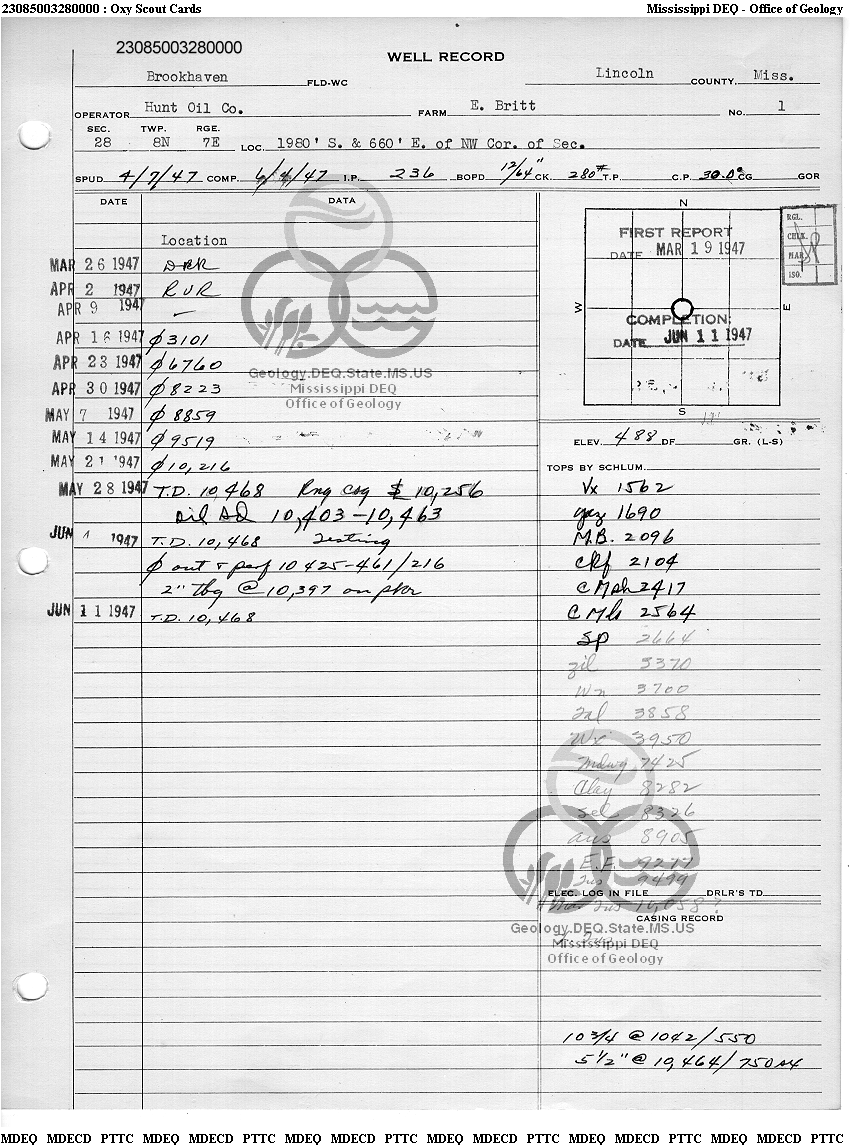 23085003280000 : Oxy Scout Cards Mississippi DEQ - Office of Geology
23085003280000
WELL RECORD
Brookhaven FLD-WC Lincoln COUNTY, Miss.
OPERATOR Hunt Oil Co. FARM E. Britt No. 1
SEC. TWP. RGE.
28 8N 7E LOC. 1980' S. & 660' E. of NW Cor. of Sec.
SPUD 4/7/47 COMP. 6/4/47 I.P. 236 BOPD 12/64" CK. 280# T.P. C.P. 30.0° CG GOR
DATE DATA
Location
MAR 26 1947
APR 2 1947 RUR
APR 9 1947 —
APR 16 1947 φ 3101
APR 23 1947 φ 6760
APR 30 1947 φ 8223
MAY 7 1947 φ 8859
MAY 14 1947 φ 9519
MAY 21 1947 φ 10,216
MAY 28 1947 T.D. 10,468 Rng csg 10,256
oil sd 10,403-10,463
JUN 1947 T.D. 10,468 Testing
φ out & perf 10 425-461/216
2" tbg @ 10,397 on pkr
JUN 11 1947 T.D. 10,468
Geology.DEQ.State.MS.US
Mississippi DEQ
Office of Geology
N
FIRST REPORT
DATE MAR 19 1947
W E
COMPLETION:
DATE JUN 11 1947
S
RGL.
CHLK.
MAR
ISO.
ELEV. 488 DF GR. (L-S)
TOPS BY SCHLUM.
Vx 1562
yaz 1690
M.B. 2096
Ckf 2104
C Mph 2417
C Mls 2564
Sp 2664
zil 3370
Wn 3700
Tal 3858
Wx 3950
Mdwy 7425
Clay 8282
Sel 8326
aus 8905
E.F. 9277
Tus 9499
ELEC. LOG IN FILE DRLR'S TD
Mar Tus 10,058?
CASING RECORD
Geology.DEQ.State.MS.US
Mississippi DEQ
Office of Geology
10 3/4 @ 1042/550
5 1/2" @ 10,464/750 sx
MDEQ MDECD PTTC MDEQ MDECD PTTC MDEQ MDECD PTTC MDEQ MDECD PTTC MDEQ MDECD PTTC MDEQ MDECD PTTC